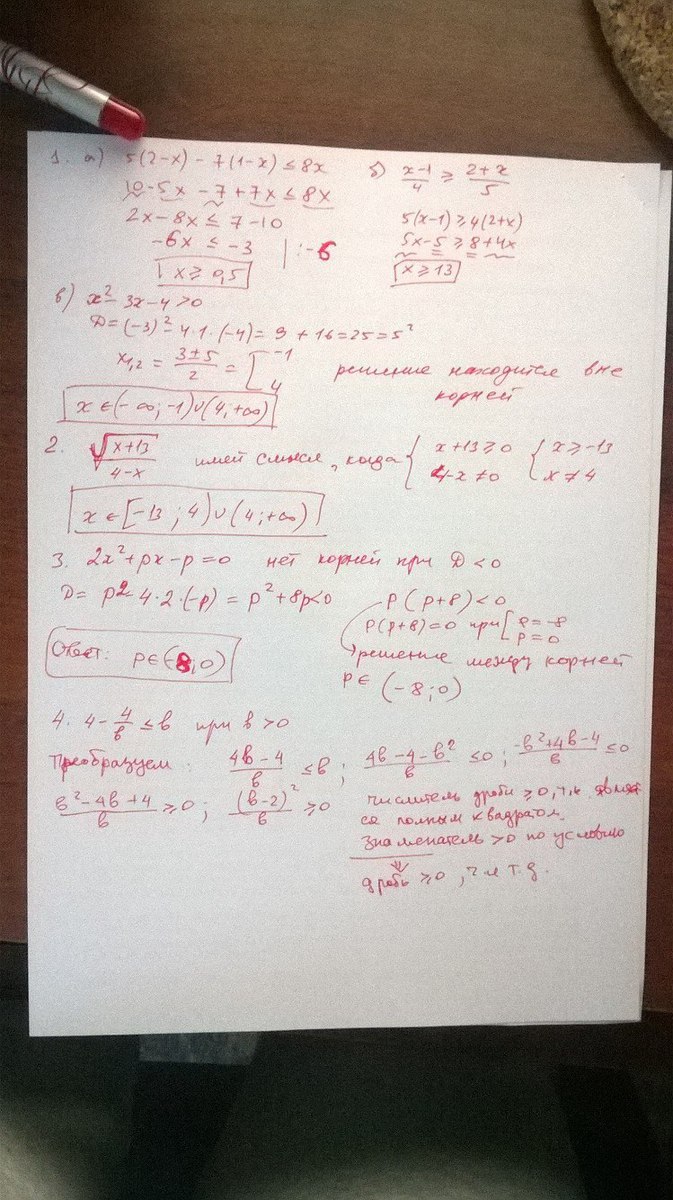 1. а) 5(2-x) - 7(1-x) ≤ 8x
10-5x -7+7x ≤ 8x
2x-8x ≤ 7-10
-6x ≤ -3 | :-6
x ≥ 0,5
б) (x-1)/4 ≥ (2+x)/5
5(x-1) ≥ 4(2+x)
5x-5 ≥ 8+4x
x ≥ 13
в) x² - 3x - 4 > 0
D = (-3)² - 4·1·(-4) = 9 + 16 = 25 = 5²
x₁,₂ = (3±5)/2 = [ -1
4
решение находится вне
корней
x ∈ (-∞; -1)∪(4, +∞)
2. √(x+13)/(4-x) имей смысл, когда { x+13 ≥ 0 { x ≥ -13
4-x ≠ 0 x ≠ 4
x ∈ [-13; 4)∪(4; +∞)
3. 2x²+px-p=0 нет корней при D < 0
D = p² - 4·2·(-p) = p² + 8p < 0
p(p+8) < 0
p(p+8)=0 при [ p = -8
p = 0
решение между корней
p ∈ (-8; 0)
Ответ: p∈(-8; 0)
4. 4 - 4/b ≤ b при b > 0
Преобразуем: (4b-4)/b ≤ b; (4b-4-b²)/b ≤ 0; (-b²+4b-4)/b ≤ 0
(b²-4b+4)/b ≥ 0; (b-2)²/b ≥ 0
числитель дроби ≥ 0, т.к. являет
ся полным квадратом.
Знаменатель > 0 по условию
⇓
дробь ≥ 0, ч и т.д.